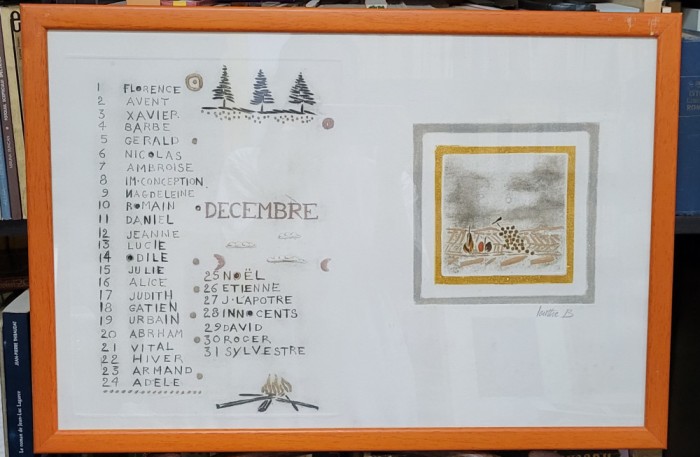 1 FLORENCE
2 AVENT
3 XAVIER
4 BARBE
5 GERALD
6 NICOLAS
7 AMBROISE
8 IM·CONCEPTION
9 MAGDELEINE
10 ROMAIN
11 DANIEL
12 JEANNE
13 LUCIE
14 ODILE
15 JULIE
16 ALICE
17 JUDITH
18 GATIEN
19 URBAIN
20 ABRHAM
21 VITAL
22 HIVER
23 ARMAND
24 ADÈLE
DECEMBRE
25 NOËL
26 ETIENNE
27 J·L'APOTRE
28 INNOCENTS
29 DAVID
30 ROGER
31 SYLVESTRE